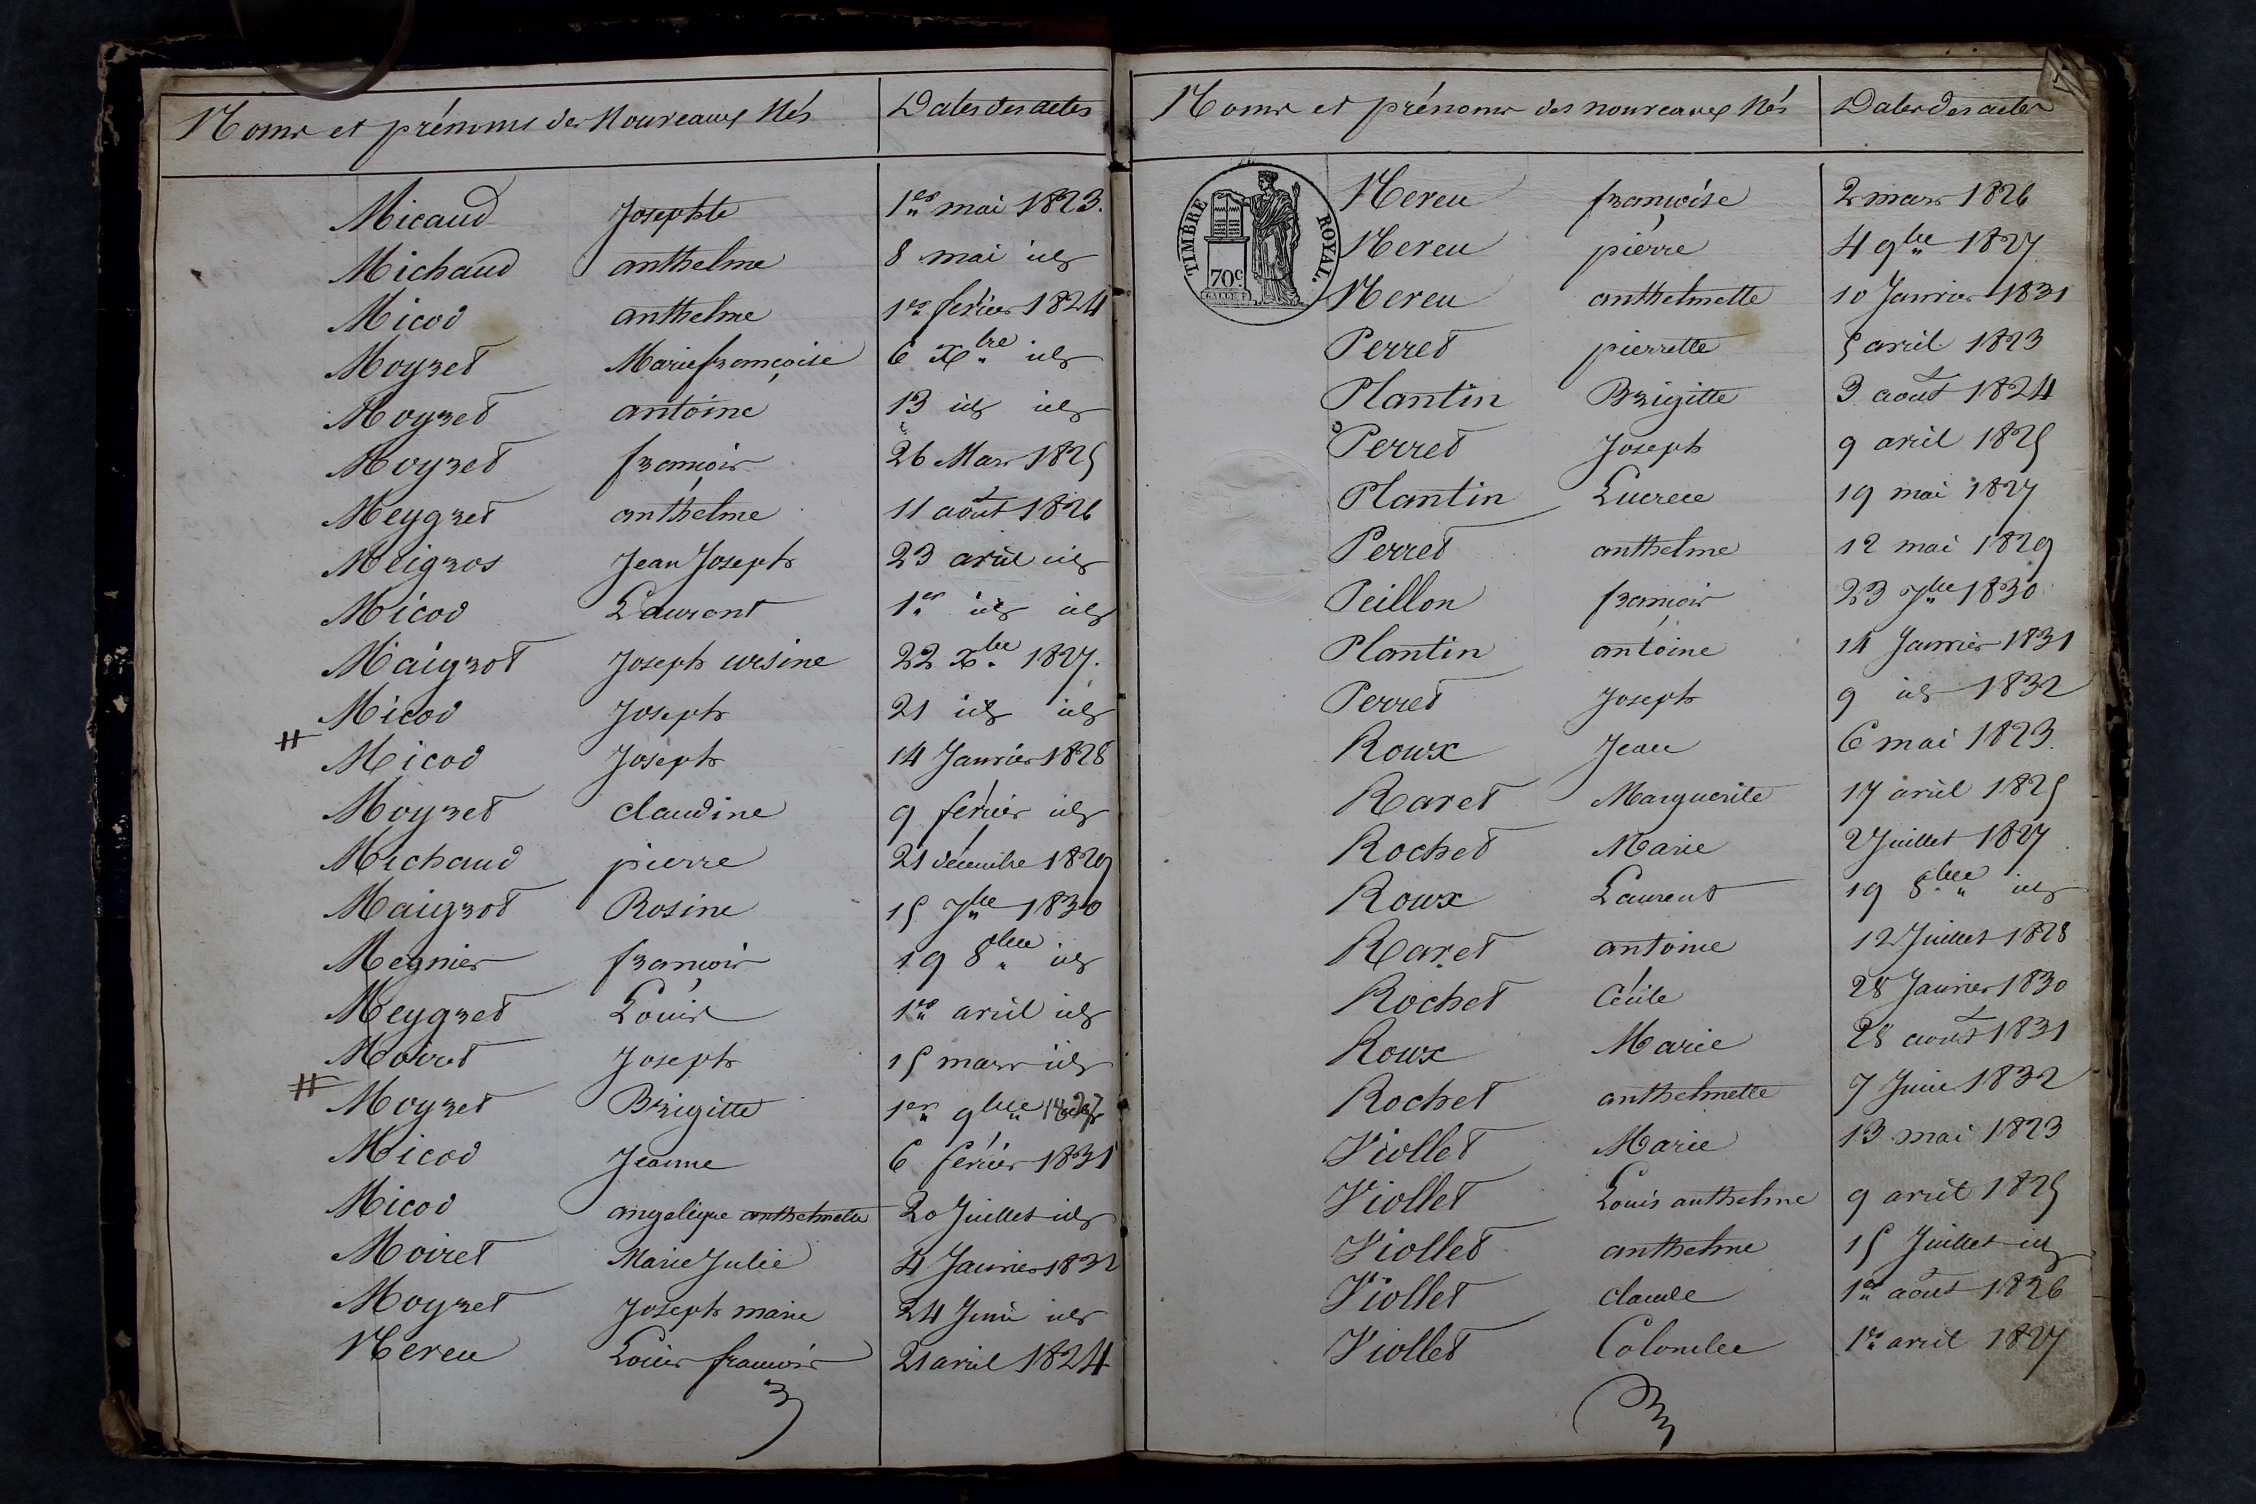 Noms et prénoms des Nouveaux Nés Dates des actes
Micaud Josephte 1er mai 1823.
Michaud anthelme 8 mai id
Micod anthelme 1er fevrier 1824
Moyret Marie françoise 6 Xbre id
Moyret antoine 13 id id
Moyret françois 26 Mars 1825
Meygret anthelme 11 août 1826
Meigros Jean Joseph 23 avril id
Micod Laurent 1er id id
Maigrot Joseph ursine 22 Xbre 1827.
Micod Joseph 21 id id
Micod Joseph 14 Janvier 1828
Moyret claudine 9 fevrier id
Michaud pierre 21 décembre 1829
Maigrot Rosine 15 7bre 1830
Megnier françois 19 8bre id
Meygret Louis 1er avril id
Moiret Joseph 15 mars id
Moyret Brigitte 1er 9bre
Micod Jeanne 6 fevrier 1831
Micod angelique anthelmette 20 Juillet id
Moiret Marie Julie 4 Janvier 1832
Moyret Joseph marie 24 Juin id
Nereu Louis françois 21 avril 1824
Noms et prénoms des nouveaux Nés Dates des actes
TIMBRE ROYAL.
70c.
Nereu françoise 2 mars 1826
Nereu pierre 4 9bre 1827
Nereu anthelmette 10 Janvier 1831
Perret pierrette 5 avril 1823
Plantin Brigitte 3 août 1824
Perret Joseph 9 avril 1825
Plantin Lucrece 19 mai 1827
Perret anthelme 12 mai 1829
Peillon françois 23 7bre 1830
Plantin antoine 14 Janvier 1831
Perret Joseph 9 id 1832
Roux Jean 6 mai 1823.
Ravet Marguerite 17 avril 1825
Rochet Marie 2 Juillet 1827
Roux Laurent 19 8bre id
Ravet antoine 12 Juillet 1828
Rochet Cécile 28 Janvier 1830
Roux Marie 28 août 1831
Rochet anthelmette 7 Juin 1832
Viollet Marie 13 mai 1823
Viollet Louis anthelme 9 avril 1825
Viollet anthelme 15 Juillet id
Viollet claude 1er août 1826
Viollet Colombe 1er avril 1827